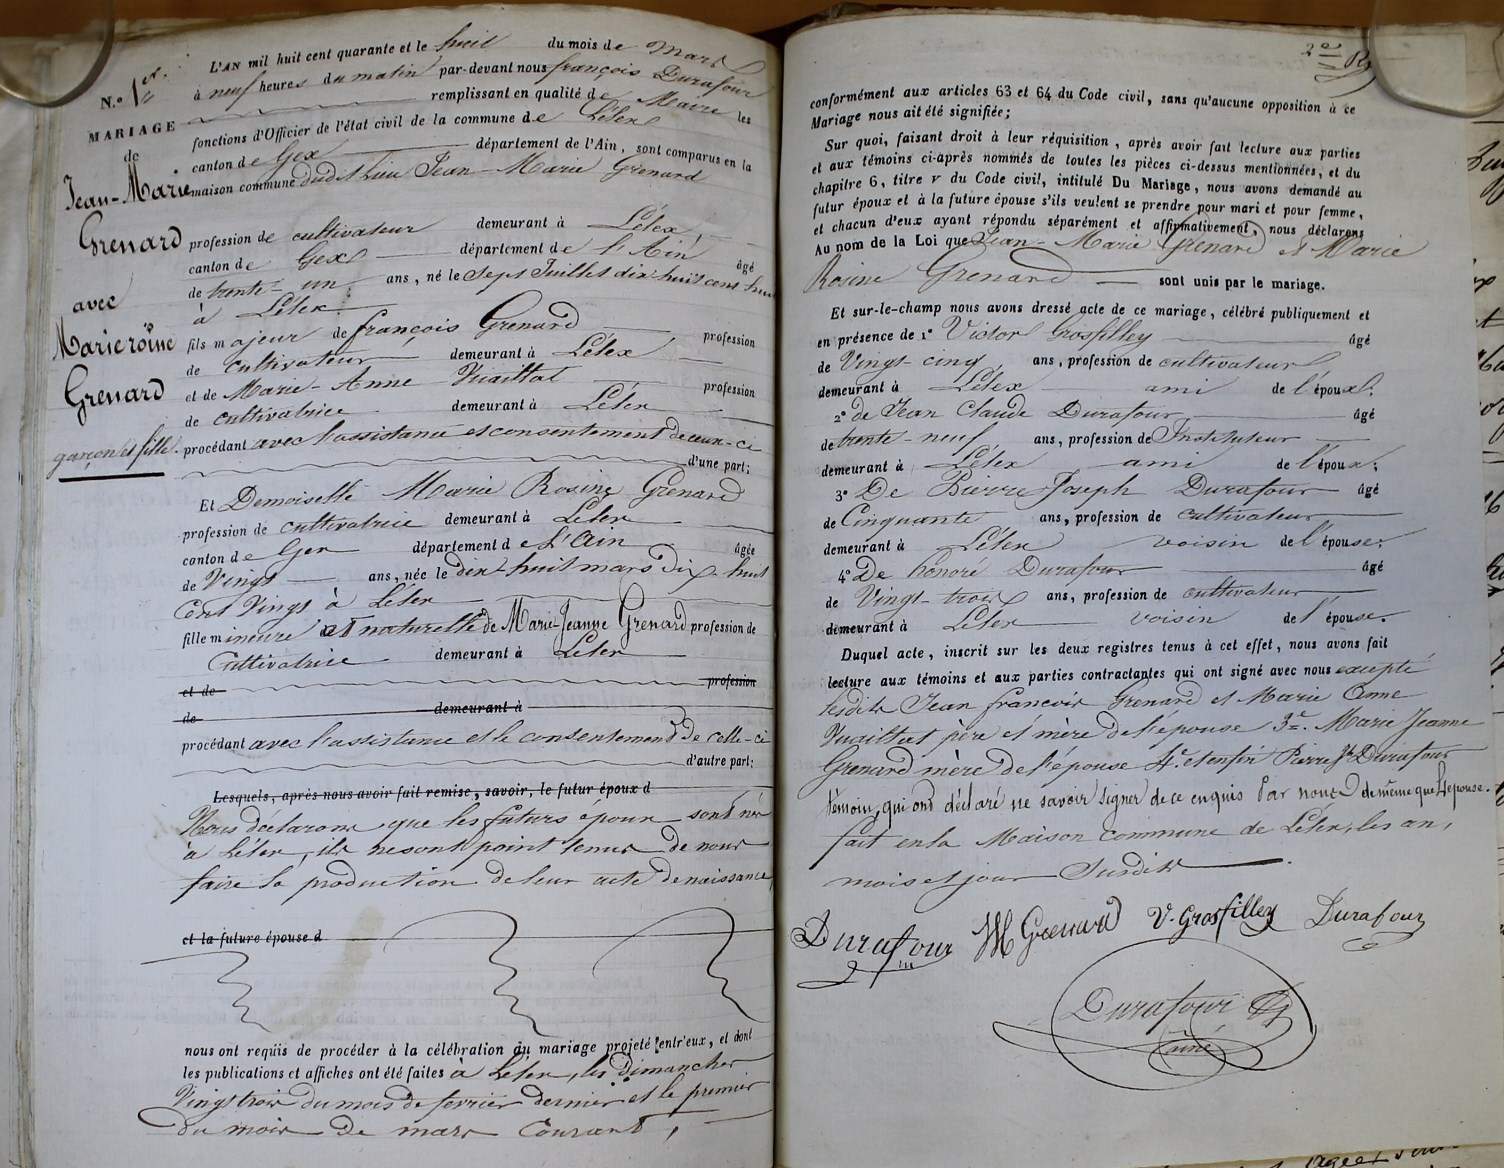 N.º 1er
MARIAGE
de
Jean-Marie
Grenard
avec
Marie rosine
Grenard
garçon et fille.
L'AN mil huit cent quarante et le huit du mois de Mars
à neuf heures du matin par-devant nous françois Durafour
remplissant en qualité de Maire les
fonctions d'Officier de l'état civil de la commune de Lélex
canton de Gex département de l'Ain, sont comparus en la
maison commune dudit lieu Jean-Marie Grenard
profession de cultivateur demeurant à Lélex,
canton de Gex département de l'Ain âgé
de trente-un ans, né le Sept Juillet dix huit cent huit
à Lélex
fils majeur de françois Grenard profession
de cultivateur demeurant à Lélex
et de Marie-Anne Vuaillat profession
de cultivatrice demeurant à Lélex
procédant avec l'assistance et consentement de ceux-ci
d'une part;
Et Demoiselle Marie Rosine Grenard
profession de cultivatrice demeurant à Lélex
canton de Gex département de L'Ain âgée
de Vingt ans, née le dix huit mars Dix-huit
Cent Vingt à Lélex
fille mineure et naturelle de Marie-Jeanne Grenard profession de
Cultivatrice demeurant à Lélex
et de profession
de demeurant à
procédant avec l'assistance et le consentement De celle-ci
d'autre part;
Lesquels, après nous avoir fait remise, savoir, le futur époux d
Nous déclarons que les futurs époux sont nés
à Lélex, ils ne sont point tenus de nous
faire la production de leur acte de naissance
et la future épouse d
nous ont requis de procéder à la célébration du mariage projeté entr'eux, et dont
les publications et affiches ont été faites à Lélex, les Dimanches
Vingt trois du mois de fevrier dernier et le premier
du mois de mars Courant,
2e
conformément aux articles 63 et 64 du Code civil, sans qu'aucune opposition à ce
Mariage nous ait été signifiée;
Sur quoi, faisant droit à leur réquisition, après avoir fait lecture aux parties
et aux témoins ci-après nommés de toutes les pièces ci-dessus mentionnées, et du
chapitre 6, titre V du Code civil, intitulé Du Mariage, nous avons demandé au
futur époux et à la future épouse s'ils veulent se prendre pour mari et pour femme,
et chacun d'eux ayant répondu séparément et affirmativement, nous déclarons
Au nom de la Loi que Jean-Marie Grenard et Marie
Rosine Grenard sont unis par le mariage.
Et sur-le-champ nous avons dressé acte de ce mariage, célébré publiquement et
en présence de 1º Victor Grosfilley âgé
de Vingt-cinq ans, profession de cultivateur
demeurant à Lélex ami de l'époux.
2º de Jean Claude Durafour, âgé
de trente-neuf ans, profession de Instituteur
demeurant à Lélex ami de l'époux;
3º De Pierre Joseph Durafour âgé
de Cinquante ans, profession de cultivateur
demeurant à Lélex voisin de l'épouse;
4º De honoré Durafour âgé
de Vingt-trois ans, profession de cultivateur
demeurant à Lélex voisin de l'épouse.
Duquel acte, inscrit sur les deux registres tenus à cet effet, nous avons fait
lecture aux témoins et aux parties contractantes qui ont signé avec nous excepté
lesdits Jean françois Grenard et Marie Anne
Vuaillat père et mère de l'épouse 3e. Marie Jeanne
Grenard mère de l'épouse 4e. et enfin Pierre Jh Durafour
témoin, qui ont déclaré ne savoir signer de ce enquis Par nous de même que L'épouse.
fait en la Maison commune de Lélex, les an,
mois et jour Susdits
Durafour JM Grenard V. Grosfilley Durafour
Durafour
ainé